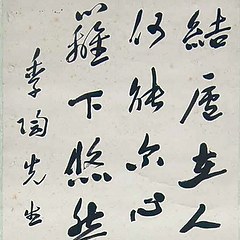 結廬在人
何能尔心
籬下悠然
季陶先生